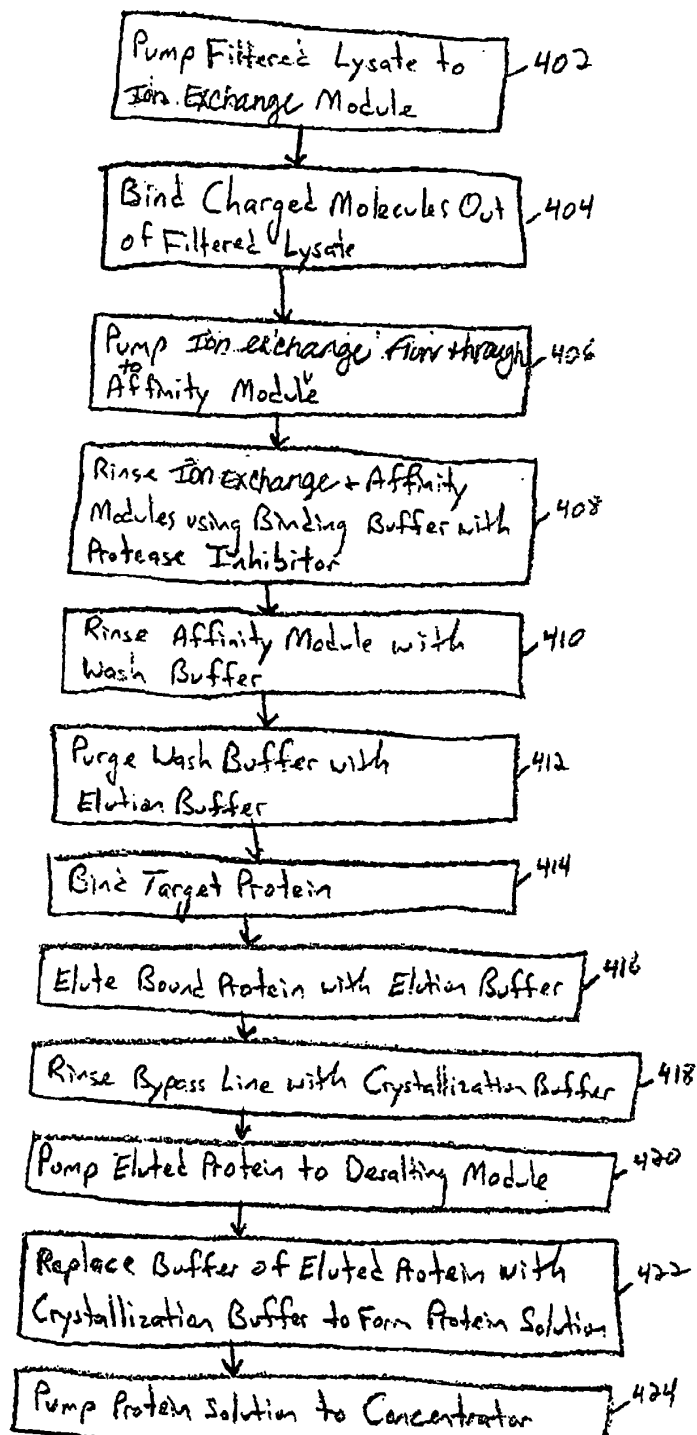 Pump Filtered Lysate to
Ion Exchange Module
402
Bind Charged Molecules Out
of Filtered Lysate
404
Pump Ion exchange Flow through
to
Affinity Module
406
Rinse Ion Exchange + Affinity
Modules using Binding Buffer with
Protease Inhibitor
408
Rinse Affinity Module with
Wash Buffer
410
Purge Wash Buffer with
Elution Buffer
412
Bind Target Protein
414
Elute Bound Protein with Elution Buffer
416
Rinse Bypass Line with Crystallization Buffer
418
Pump Eluted Protein to Desalting Module
420
Replace Buffer of Eluted Protein with
Crystallization Buffer to Form Protein Solution
422
Pump Protein Solution to Concentrator
424